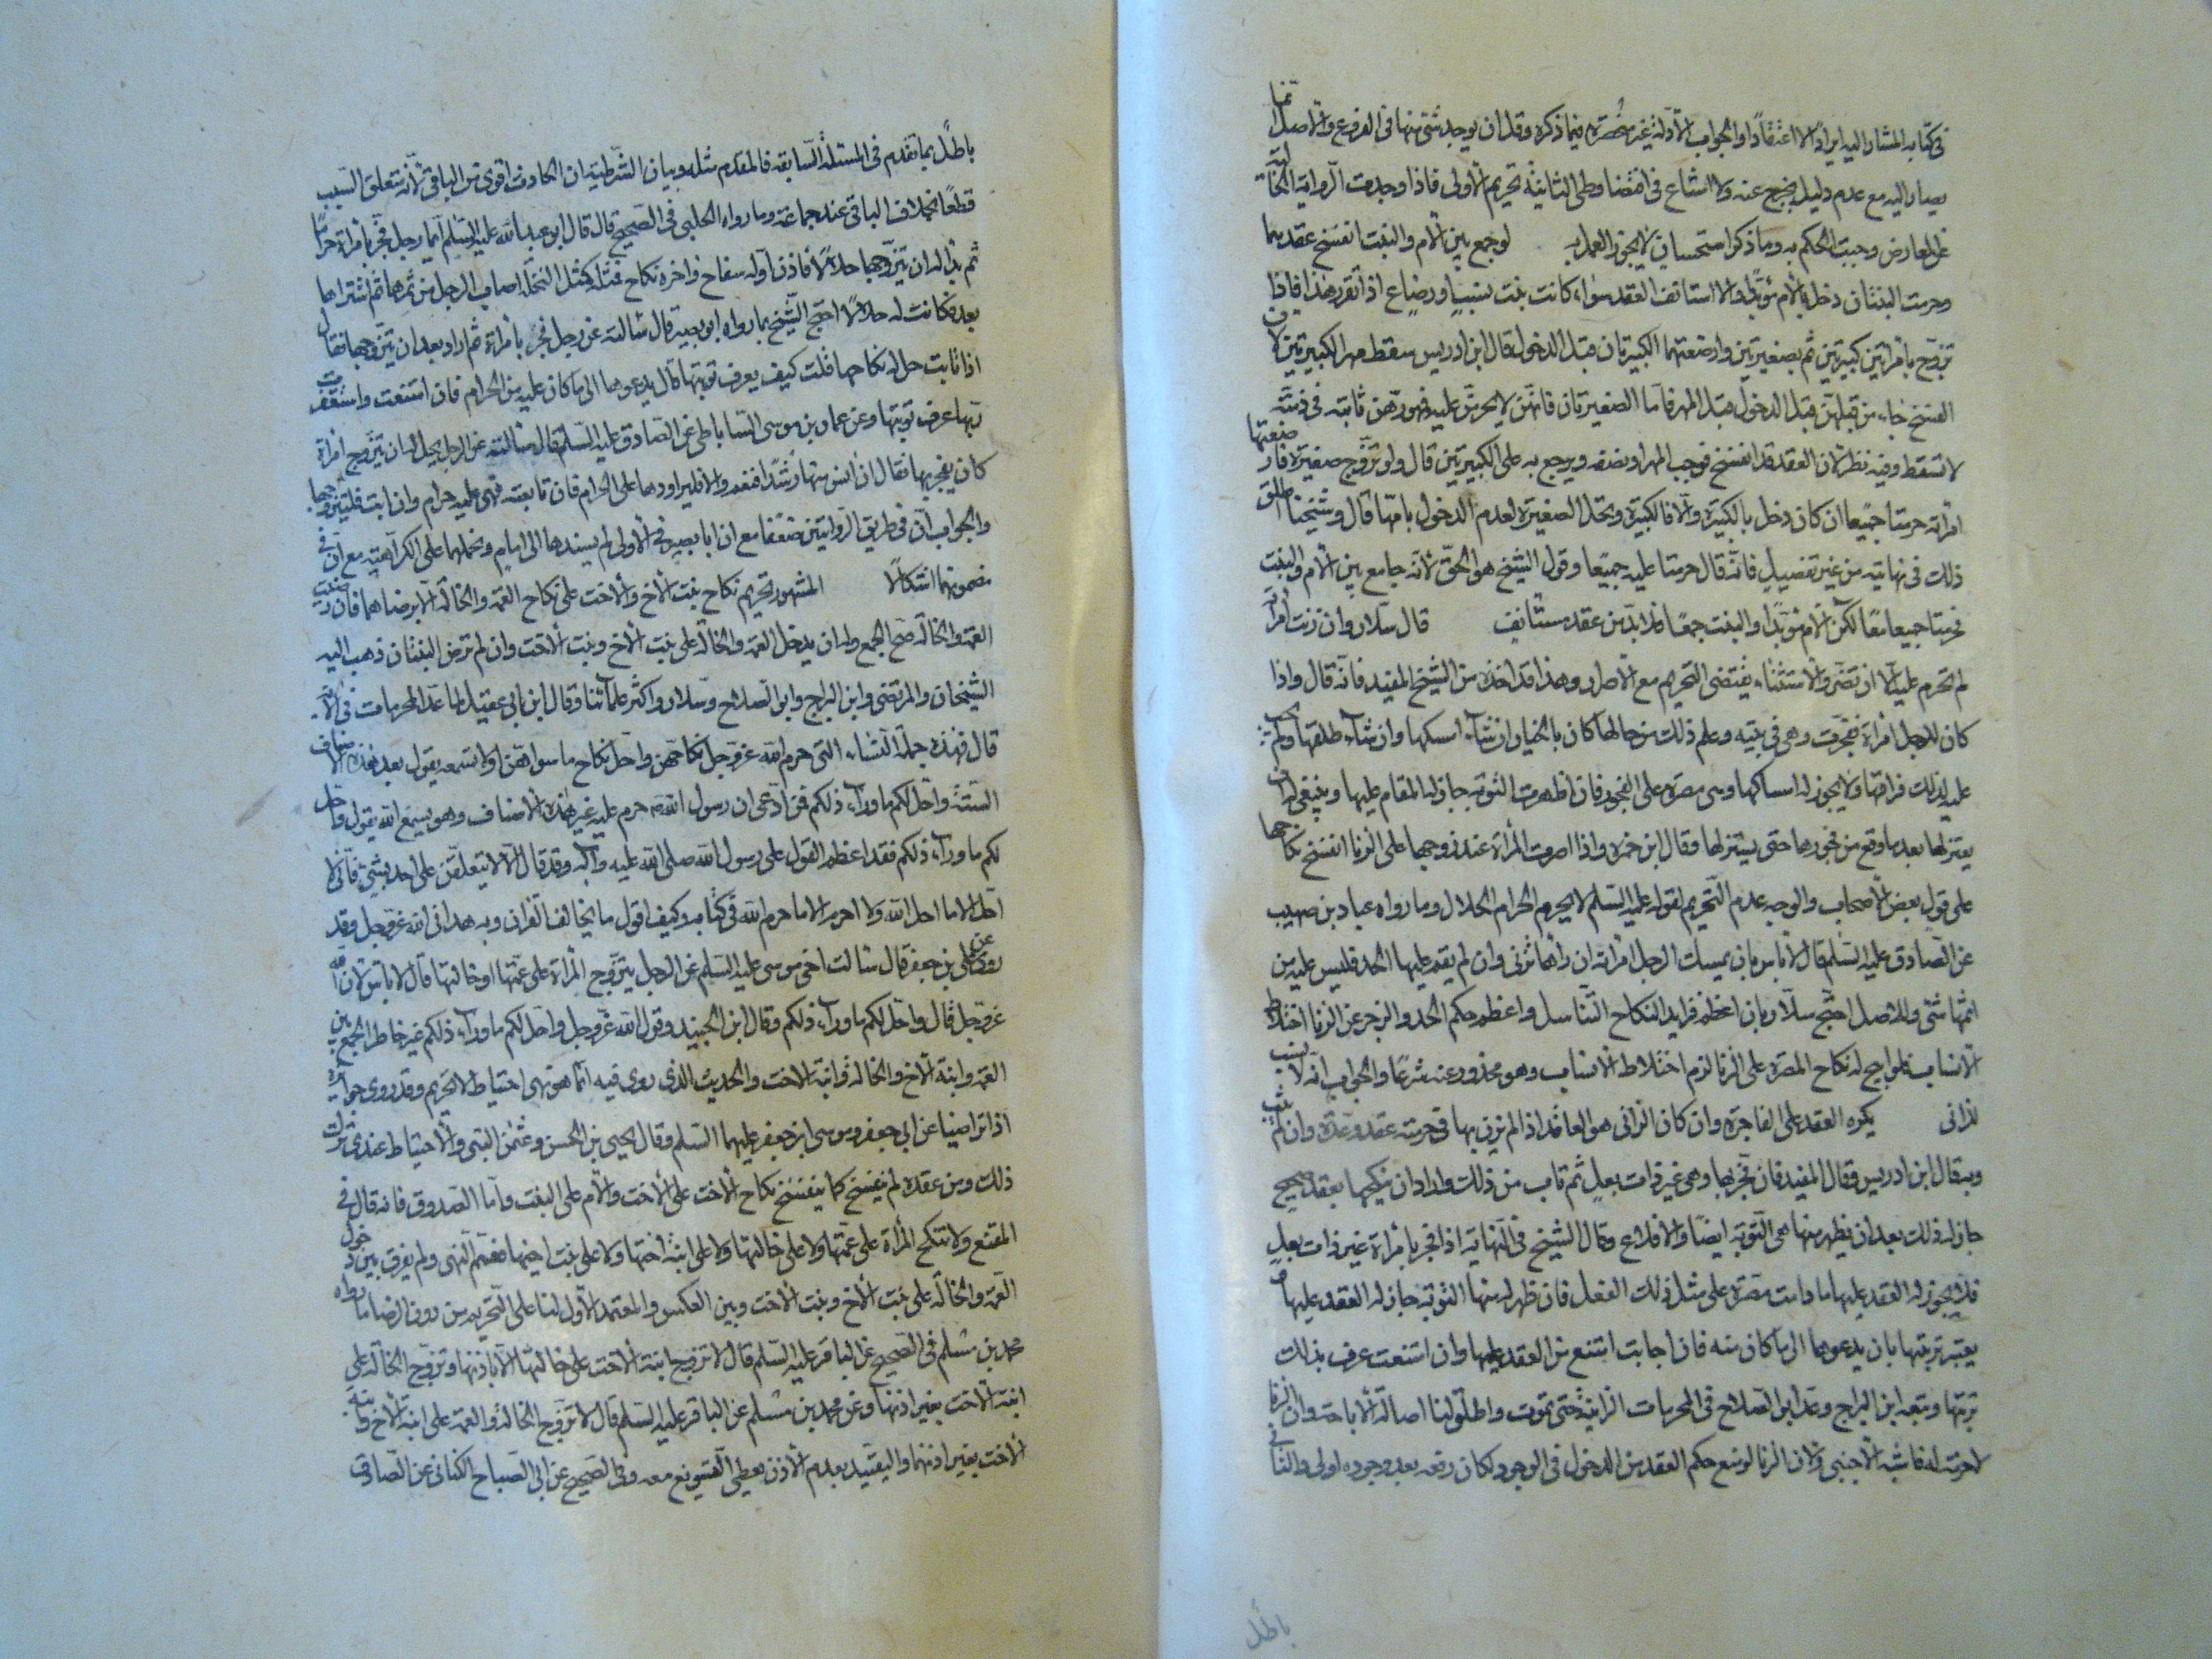 في كتابه المشار اليه ايرادًا لا اعتقادًا والجواب الادلة غير منحصرة فيما ذكره وقل ان يوجد شئ منها في الفروع والاصل انما
يصار اليه مع عدم دليل يخرج عنه ولا امتناع في اقتضا وطى الثانية تحريم الاولى فاذا وجدت الرواية الخالية
عن المعارض وجبت الحكم به وما ذكر استحسان لا يجوز العمل به لو جمع بين الام والبنت انفسخ عقدهما
وحرمت البنت ان دخل بالام مؤبدًا والا استانف العقد سواء كانت بنت بنسب او رضاع اذا تقرر هذا فاذا
تزوج بامراتين كبيرتين ثم بصغيرتين وارضعتهما الكبيرتان قبل الدخول قال ابن ادريس سقط مهر الكبيرتين لان
الفسخ جاء من قبلهن قبل الدخول قبل المهر فاما الصغيرتان فانهن لا يحرمن عليه فمهورهن ثابتة في ذمته
لا تسقط وفيه نظر لان العقد قد انفسخ فوجب المهر او نصفه ويرجع به على الكبيرتين قال ولو تزوج صغيرة فارضعتها
امراته حرمتا جميعا ان كان دخل بالكبيرة والا فالكبيرة وتحل الصغيرة لعدم الدخول بامها قال وشيخنا اطلق
ذلك في نهايته من غير تفصيل فانه قال حرمتا عليه جميعا وقول الشيخ هو الحق لانه جامع بين الام والبنت
فحرمتا جميعا معًا لكن الام مؤبدًا والبنت جمعًا فلا بد من عقد مستانف قال سلار وان زنت امراته
لم تحرم عليه الا ان تصر والاستثناء يقتضي التحريم مع الاصرار وهذا قد اخذه من الشيخ المفيد فانه قال واذا
كان للرجل امراة ففجرت وهي في بيته وعلم ذلك من حالها كان بالخيار ان شاء امسكها وان شاء طلقها ولم يجب
عليه لذلك فراقها ولا يجوز له امساكها وهي مصرة على الفجور فان اظهرت التوبة جاز له المقام عليها وينبغي له ان
يعتزلها بعد ما وقع من فجورها حتى يستبرئها وقال ابن حمزه واذا اصرت المراة عند زوجها على الزنا انفسخ نكاحها
على قول بعض الاصحاب والوجه عدم التحريم لقوله عليه السلم لا يحرم الحرام الحلال وما رواه عباد بن صهيب
عن الصادق عليه السلم قال لا باس بان يمسك الرجل امراته ان راها تزني وان لم يقم عليها الحد فليس عليه من
اثمها شئ وللاصل احتج سلار بان اعظم فوايد النكاح التناسل واعظم حكم الحد والزجر عن الزنا اختلاط
الانساب فلو ابيح له نكاح المصرة على الزنا لزم اختلاط الانساب وهو محذور عنه شرعًا والجواب انه لا نسب
للزاني يكره العقد على الفاجرة وان كان الزاني هو العاقد اذا لم يزن بها في حرمة عقد وعدة وان لم تتب
وبه قال ابن ادريس وقال المفيد فان فجر بها وهي غير ذات بعل ثم تاب من ذلك واراد ان ينكحها بعقد صحيح
جاز له ذلك بعد ان يظهر منها هي التوبة ايضًا والاقلاع وقال الشيخ في النهاية اذا فجر بامراة غير ذات بعل
فلا يجوز له العقد عليها ما دامت مصرة على مثل ذلك الفعل فان ظهر له منها التوبة جاز له العقد عليها و
يعتبر توبتها بان يدعوها الى ما كان منه فان اجابت امتنع من العقد عليها وان امتنعت عرف بذلك
توبتها وتبعه ابن البراج وعد ابو الصلاح في المحرمات الزانية حتى تموت واطلق لنا اصالة الاباحة وان الزنا
لا حرمة له فاشبه الاجنبي ولان الزنا لو منع حكم العقد من الدخول في الوجود لكان رفعه بعد وجوده اولى والتالي
باطل
باطل بما تقدم في المسئلة السابقه فالمقدم مثله وبيان الشرطية ان الحادث اقوى من الباقي لانه متعلق السبب
قطعًا بخلاف الباقي عند جماعة وما رواه الحلبي في الصحيح قال قال ابو عبد الله عليه السلم ايما رجل فجر بامراة حرامًا
ثم بدا له ان يتزوجها حلالا فاذن اوله سفاح واخره نكاح فمثله كمثل النخلة اصاب الرجل من ثمرها ثم اشتراها
بعد فكانت له حلالا احتج الشيخ بما رواه ابو بصير قال سالته عن رجل فجر بامراة ثم اراد بعد ان يتزوجها فقال
اذا تابت حل له نكاحها قلت كيف يعرف توبتها قال يدعوها الى ما كان عليه من الحرام فان امتنعت واستغفرت
ربها عرف توبتها وعن عمار بن موسى الساباطي عن الصادق عليه السلم قال سالته عن الرجل يحل له ان يتزوج امراة
كان يفجر بها فقال ان انس منها رشدًا فنعم والا فليراودها على الحرام فان تابعته فهي عليه حرام وان ابت فليتزوجها
والجواب ان في طريق الروايتين ضعفًا مع ان ابا بصير في الاولى لم يسندها الى امام ونحملهما على الكراهية مع ان في
مضمونهما اشكالًا المشهور تحريم نكاح بنت الاخ والاخت على نكاح العمة والخالة الا برضاهما فان رضيت
العمة والخالة صح الجمع وله ان يدخل العمة والخالة على بنت الاخ وبنت الاخت وان لم ترض البنتان ذهب اليه
الشيخان والمرتضى وابن البراج وابو الصلاح وسلار واكثر علمائنا وقال ابن ابي عقيل لما عد المحرمات في الاية
قال فهذه جملة النساء التي حرم الله عز وجل نكاحهن واحل نكاح ما سواهن اولا تسمعه يقول بعد هذه الاصناف
الستة واحل لكم ما وراء ذلكم فمن ادعى ان رسول الله ص حرم عليه غير هذه الاصناف وهو يسمع الله يقول واحل
لكم ما وراء ذلكم فقد اعظم القول على رسول الله صلى الله عليه وآله وقد قال الا لا يتعلقن على احد بشئ فاني لا
احل الا ما احل الله ولا احرم الا ما حرم الله في كتابه وكيف اقول ما يخالف القران وبه هداني الله عز وجل وقد
روي عن علي بن جعفر قال سالت اخي موسى عليه السلم عن الرجل يتزوج المراة على عمتها او خالتها قال لا باس لان الله
عز وجل قال واحل لكم ما وراء ذلكم وقال ابن الجنيد وقول الله عز وجل واحل لكم ما وراء ذلكم غير حاظر الجمع بين
العمة وابنة الاخ والخالة وابنة الاخت والحديث الذي روي فيه انما هو نهى احتياط لا تحريم وقد روي جوازه
اذا تراضيا عن ابي جعفر وموسى ابن جعفر عليهما السلم وقال يحيى بن الحسن وعثمن البتي والاحتياط عندي ترك
ذلك ومن عقده لم ينفسخ كما ينفسخ نكاح الاخت على الاخت والام على البنت واما الصدوق فانه قال في
المقنع ولا تنكح المراة على عمتها ولا على خالتها ولا على ابنة اختها ولا على بنت اخيها فعمم النهى ولم يفرق بين دخول
العمة والخالة على بنت الاخ وبنت الاخت وبين العكس والمعتمد الاول لنا على التحريم من دون الرضا ما رواه
محمد بن مسلم في الصحيح عن الباقر عليه السلم قال لا تزوج ابنة الاخت على خالتها الا باذنها وتزوج الخالة على
ابنة الاخت بغير اذنها وعن محمد بن مسلم عن الباقر عليه السلم قال لا تزوج الخالة والعمة على ابنة الاخ وابنة
الاخت بغير اذنهما والتقييد بعدم الاذن يعطي التسويغ معه وفي الصحيح عن ابي الصباح الكناني عن الصادق